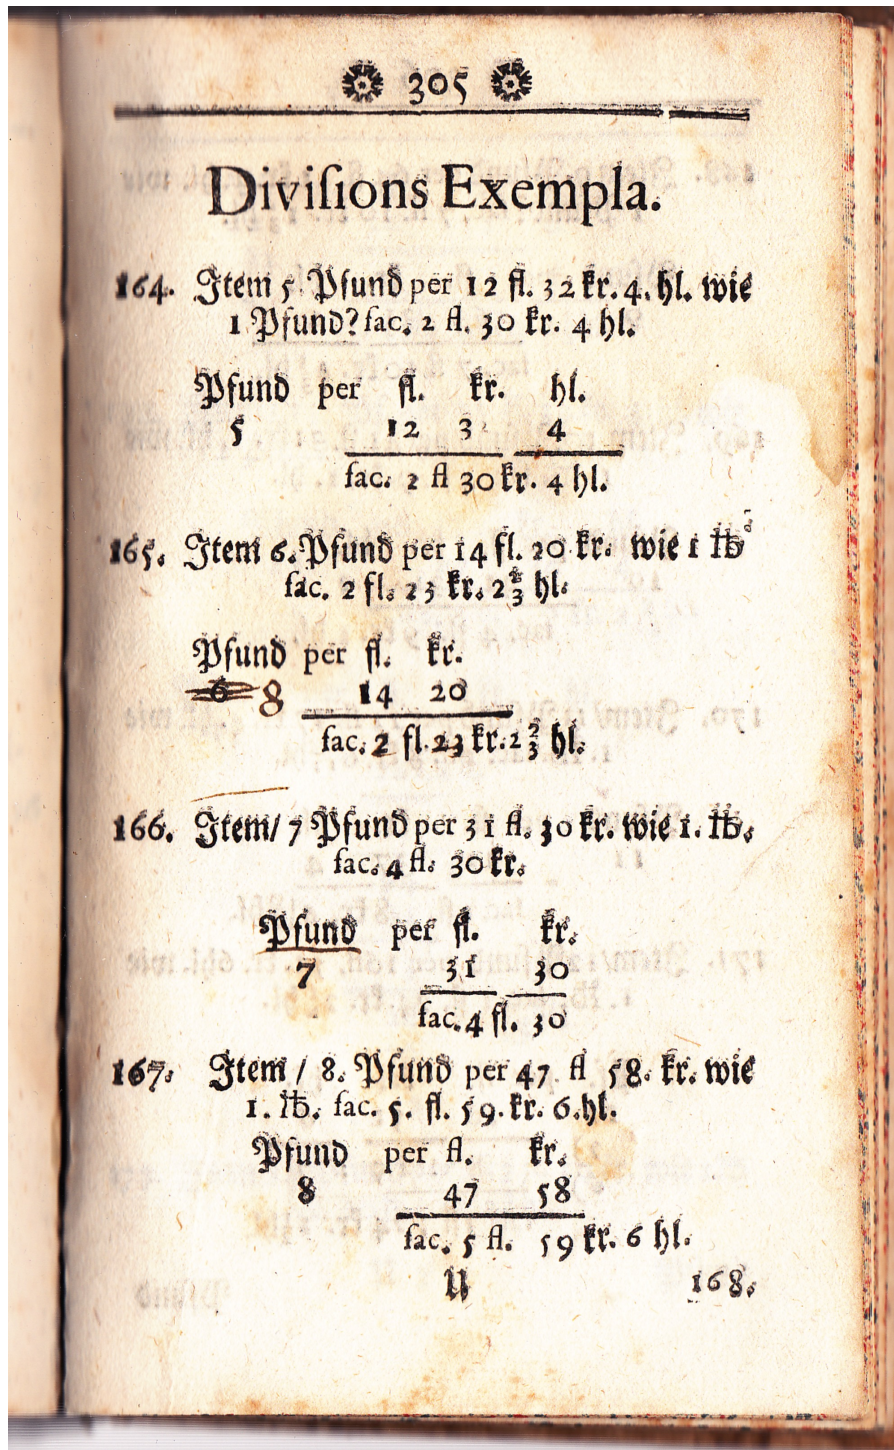 305
Diviſions Exempla.
164. Item 5 Pfund per 12 fl. 32 kr. 4. hl. wie
1 Pfund? fac. 2 fl. 30 kr. 4 hl.
Pfund per fl. kr. hl.
5 12 3 4
fac. 2 fl 30 kr. 4 hl.
165. Item 6. Pfund per 14 fl. 20 kr. wie 1 ℔
fac. 2 fl. 23 kr. 2 2/3 hl.
Pfund per fl. kr.
6 8 14 20
fac. 2 fl. 23 kr. 2 2/3 hl.
166. Item/ 7 Pfund per 31 fl. 30 kr. wie 1. ℔.
fac. 4 fl. 30 kr.
Pfund per fl. kr.
7 31 30
fac. 4 fl. 30
167. Item / 8. Pfund per 47 fl 58. kr. wie
1. ℔. fac. 5. fl. 59. kr. 6. hl.
Pfund per fl. kr.
8 47 58
fac. 5 fl. 59 kr. 6 hl.
U 168.